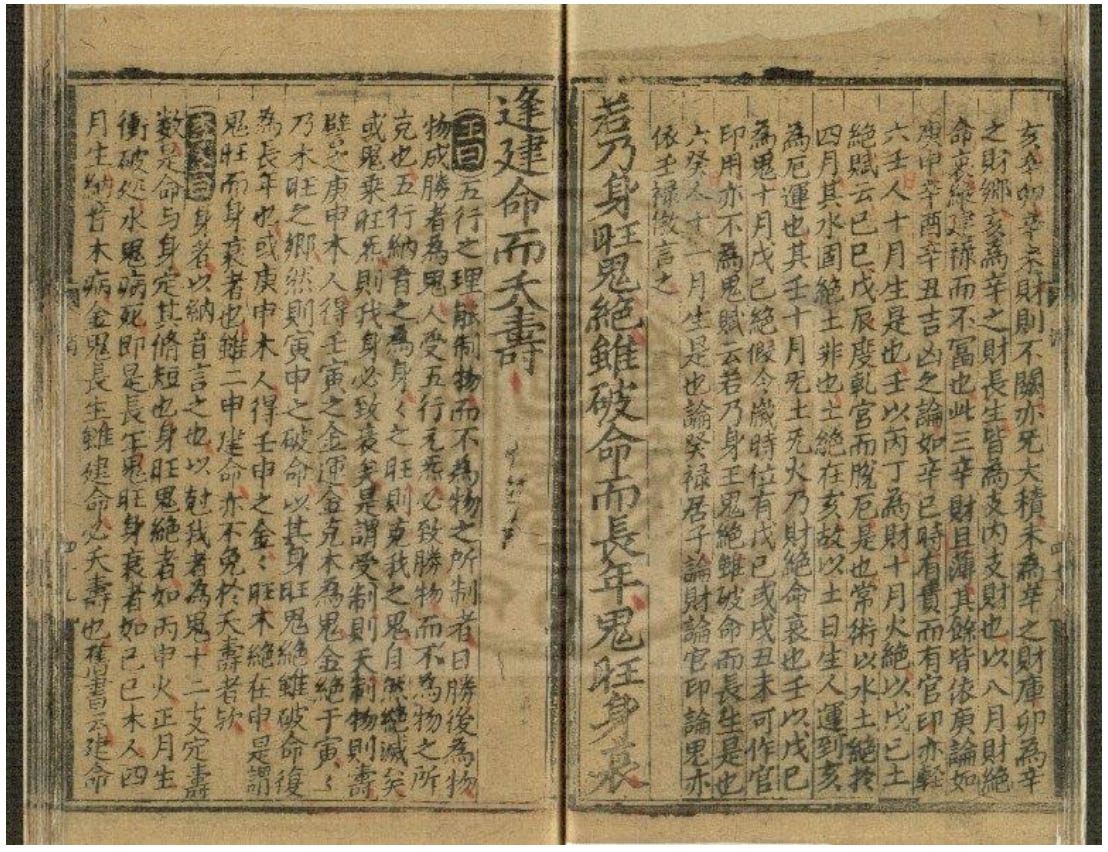 亥辛卯辛未財則不關亦死大積未為辛之財庫卯為辛
之財鄉亥為辛之財長生皆為支內支財也以八月財絕
命衰緣建祿而不富也此三辛財且薄其餘皆依庚論如
庚申辛酉辛丑吉凶之論如辛巳時有貴而有官印亦輕
六壬人十月生是也壬以丙丁為財十月火絕以戊己土
絕賦云己巳戊辰度乾宮而脫厄是也常術以水土絕於
四月其水固絕土非也土絕在亥故以土日生人運到亥
為厄運也其壬十月死土死火乃財絕命衰也壬以戊己
為鬼十月戊己絕假令歲時位有戊己或戌丑未可作官
印用亦不為鬼賦云若乃身王鬼絕雖破命而長生是也
六癸人十一月生是也論癸祿居子論財論官印論鬼亦
依壬祿倣言之
若乃身旺鬼絕雖破命而長年鬼旺身衰
逢建命而夭壽
王曰五行之理能制物而不為物之所制者曰勝後為物
物成勝者為鬼人受五行无炁必致勝物而不為物之所
克也五行納音之為身〻之旺則克我之鬼自然絕滅矣
或鬼乘旺炁則我身必致衰矣是謂受制則夭制物則壽
庚申木人得壬寅之金運金克木為鬼金絕于寅〻
乃木旺之鄉然則寅申之破命以其身旺鬼絕雖破命復
為長年也或庚申木人得壬申之金〻旺木絕在申是謂
鬼旺而身衰者也雖二申建命亦不免於夭壽者欤
身者以納音言之也以尅我者為鬼十二支定壽
数是命与身定其脩短也身旺鬼絕者如丙申火正月生
衝破処水鬼病死即是長年鬼旺身衰者如己巳木人四
月生納音木病金鬼長生雖建命必夭壽也舊書云建命